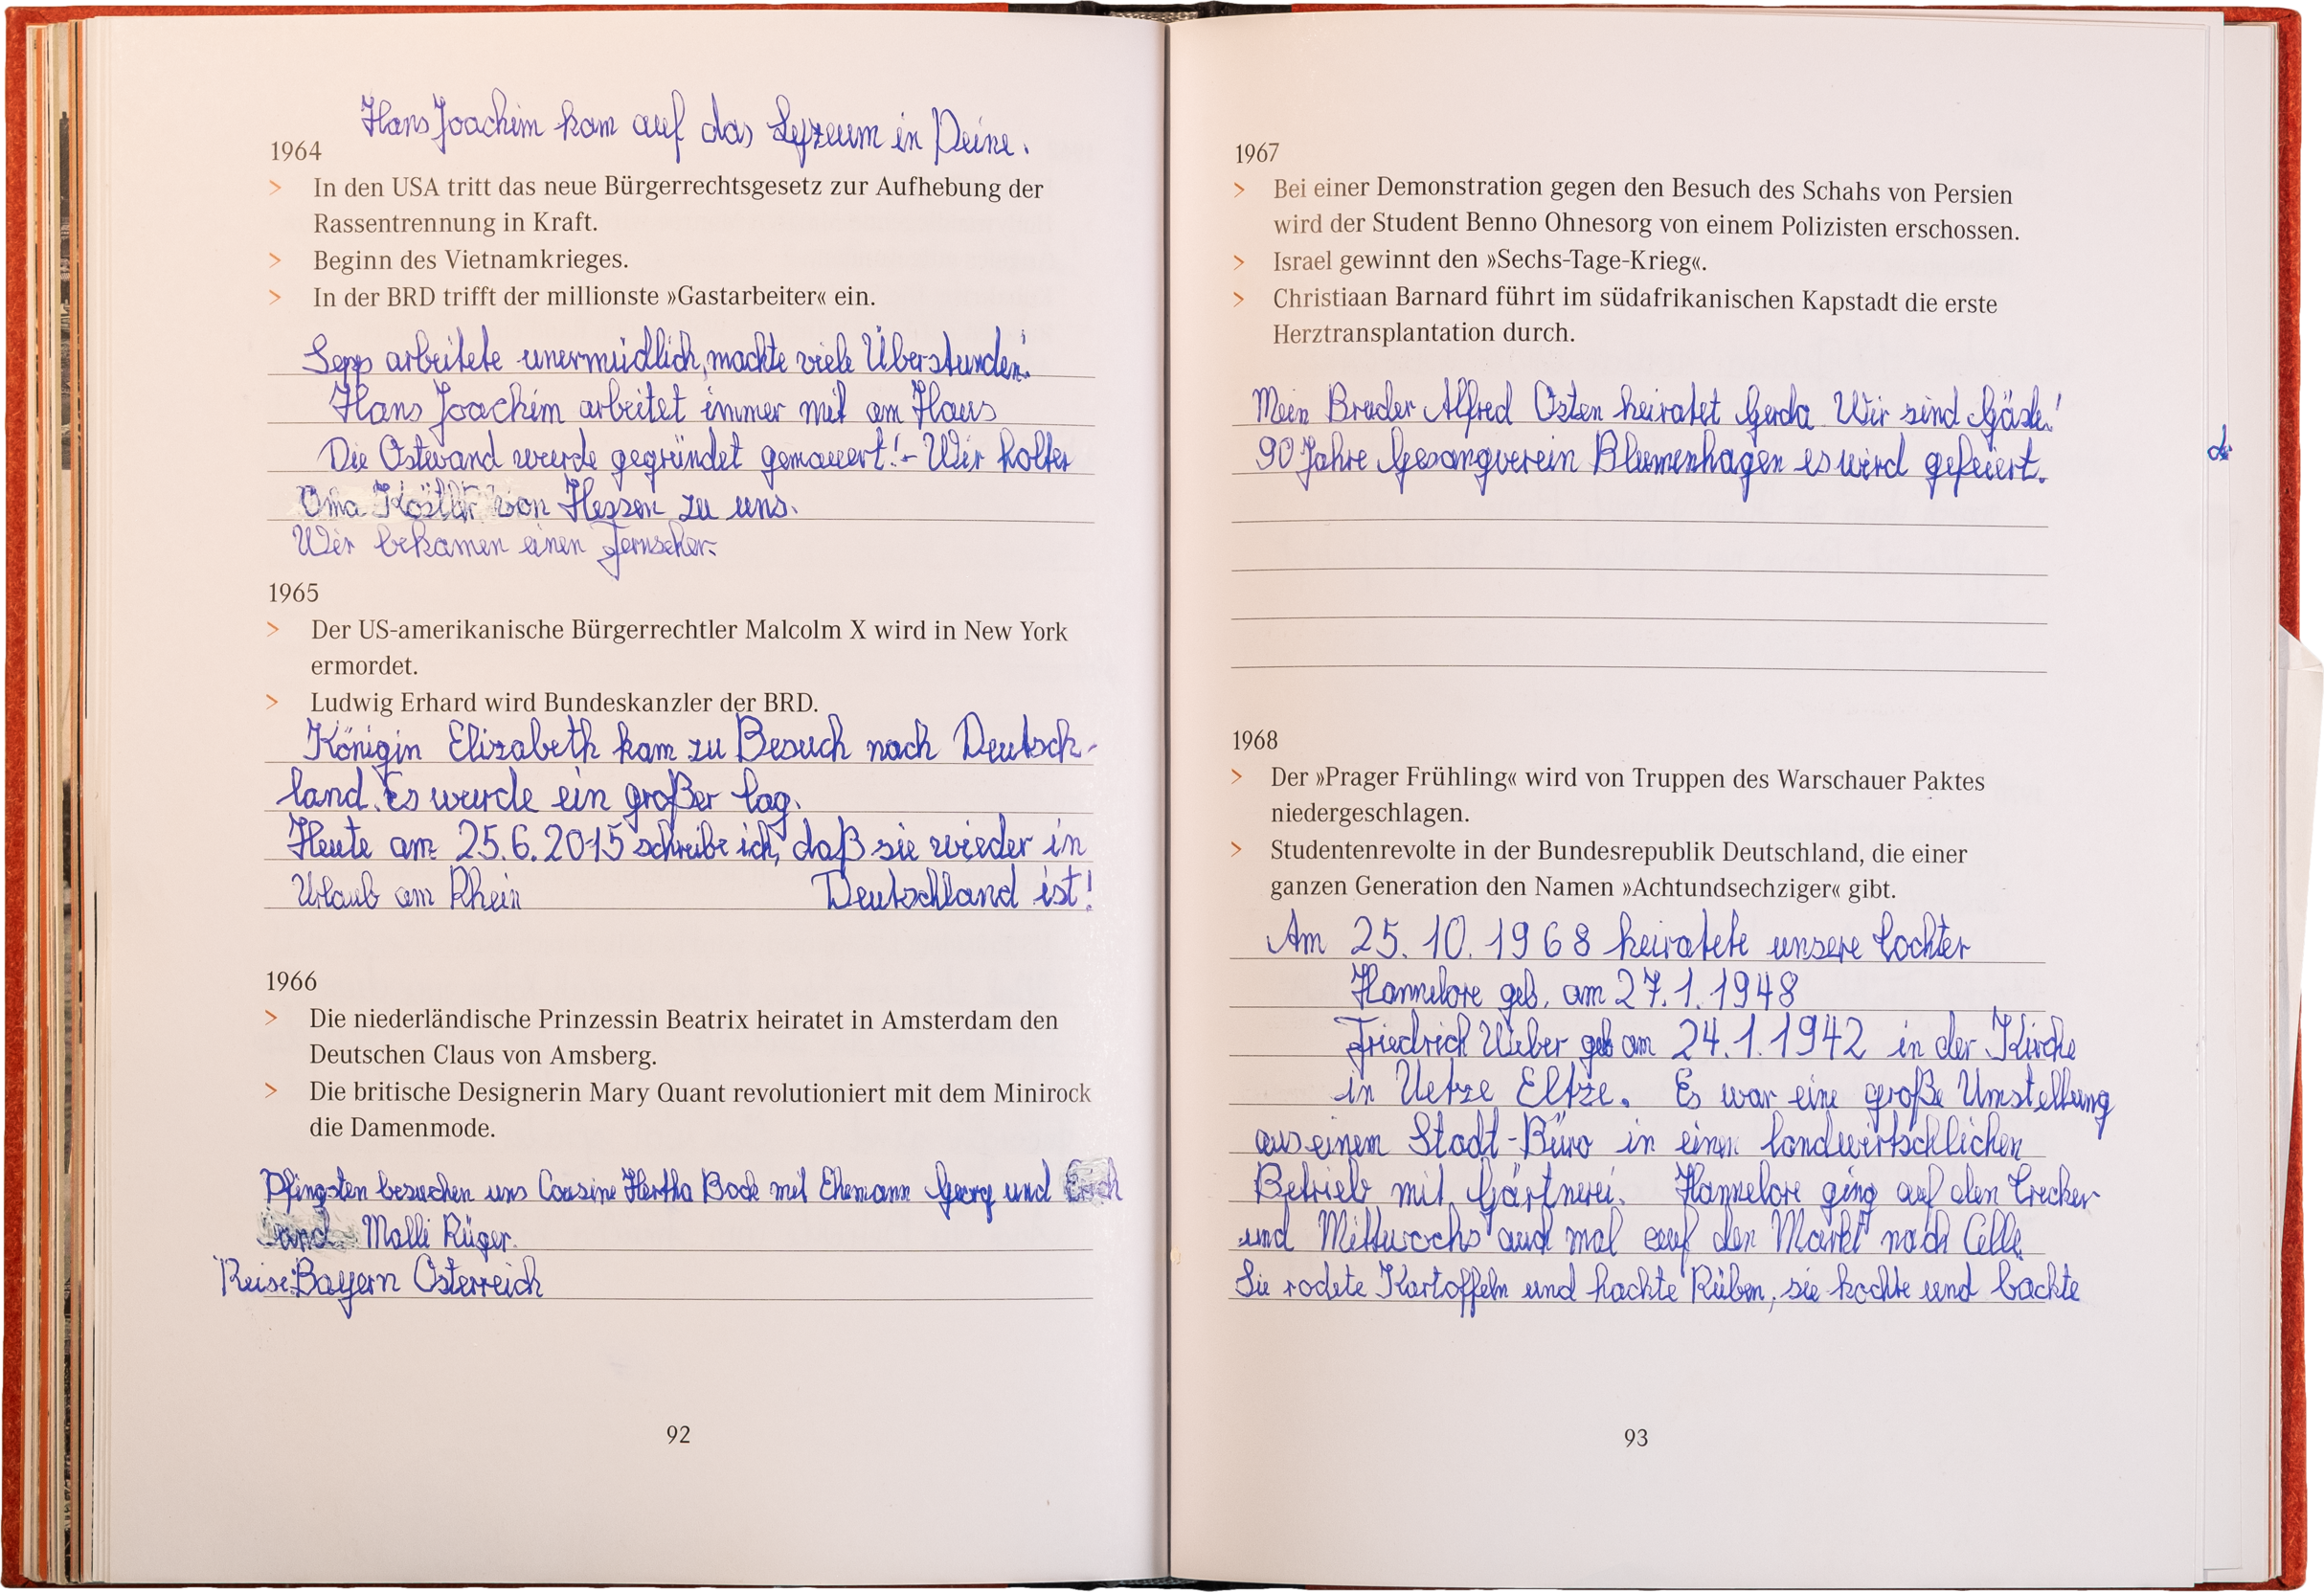 Hans Joachim kam auf das Lyzeum in Peine.
1964
> In den USA tritt das neue Bürgerrechtsgesetz zur Aufhebung der
Rassentrennung in Kraft.
> Beginn des Vietnamkrieges.
> In der BRD trifft der millionste »Gastarbeiter« ein.
Sepp arbeitete unermüdlich, machte viele Überstunden!
Hans Joachim arbeitet immer mit am Haus
Die Ostwand wurde gegründet gemauert! - Wir holten
Oma Köstler von Hessen zu uns.
Wir bekamen einen Fernseher.
1965
> Der US-amerikanische Bürgerrechtler Malcolm X wird in New York
ermordet.
> Ludwig Erhard wird Bundeskanzler der BRD.
Königin Elizabeth kam zu Besuch nach Deutsch-
land. Es wurde ein großer Tag.
Heute am 25.6.2015 schreibe ich, daß sie wieder in
Urlaub am Rhein Deutschland ist!
1966
> Die niederländische Prinzessin Beatrix heiratet in Amsterdam den
Deutschen Claus von Amsberg.
> Die britische Designerin Mary Quant revolutioniert mit dem Minirock
die Damenmode.
Pfingsten besuchen uns Cousine Hertha Bock mit Ehemann Georg und
und Malli Rüger.
Reise: Bayern Österreich
92
1967
> Bei einer Demonstration gegen den Besuch des Schahs von Persien
wird der Student Benno Ohnesorg von einem Polizisten erschossen.
> Israel gewinnt den »Sechs-Tage-Krieg«.
> Christiaan Barnard führt im südafrikanischen Kapstadt die erste
Herztransplantation durch.
Mein Bruder Alfred Osten heiratet Gerda. Wir sind Gäste!
90 Jahre Gesangverein Blumenhagen es wird gefeiert.
1968
> Der »Prager Frühling« wird von Truppen des Warschauer Paktes
niedergeschlagen.
> Studentenrevolte in der Bundesrepublik Deutschland, die einer
ganzen Generation den Namen »Achtundsechziger« gibt.
Am 25.10.1968 heiratete unsere Tochter
Hannelore geb. am 27.1.1948
Friedrich Weber geb am 24.1.1942 in der Kirche
in Uetze Eltze. Es war eine große Umstellung
aus einem Stadt-Büro in einen landwirtschlichen
Betrieb mit Gärtnerei. Hannelore ging auf den Trecker
und Mittwochs auch mal auf den Markt nach Celle.
Sie rodete Kartoffeln und hackte Rüben, sie kochte und backte
93